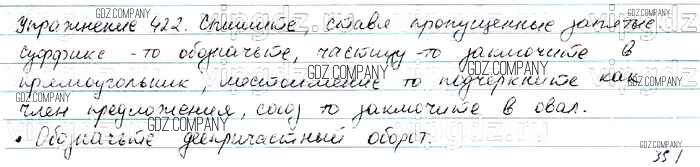 Упражнение 422. Спишите, ставя пропущенные запятые
Суффикс -то обозначьте, частицу -то заключите в
прямоугольник, местоимение то подчеркните как
член предложения, союз то заключите в овал.
• Обозначьте деепричастный оборот.
551
GDZ.COMPANY
GDZ.COMPANY
GDZ.COMPANY
GDZ.COMPANY
GDZ.COMPANY
GDZ.COMPANY
GDZ.COMPANY
GDZ.COMPANY